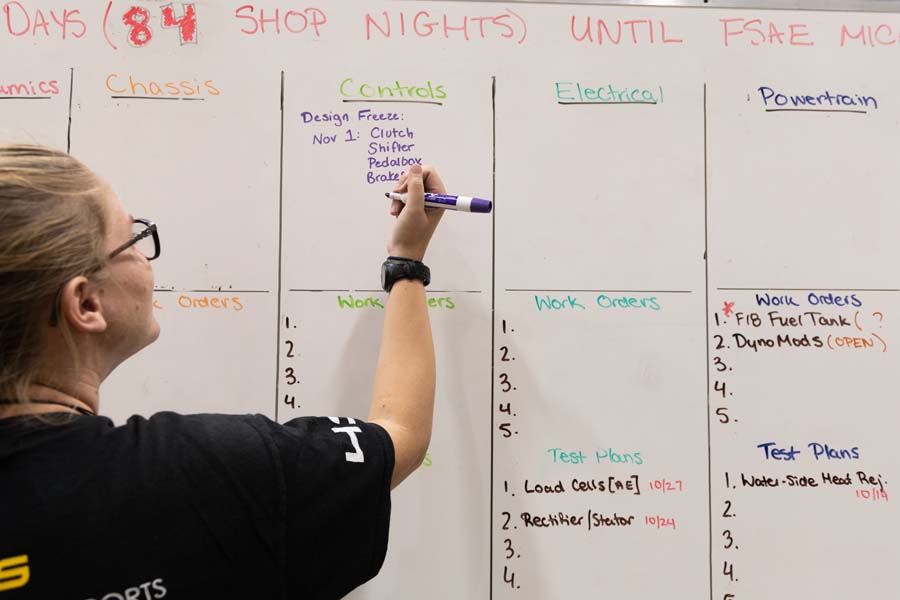 DAYS (84 SHOP NIGHTS) UNTIL FSAE MIC
amics
Chassis
Controls
Electrical
Powertrain
Design Freeze:
Nov 1: Clutch
Shifter
Pedalbox
Brakes
Orders
Work Orders
1.
2.
3.
4.
Work Orders
1.
2.
3.
4.
5.
Test Plans
1. Load Cells [AE] 10/27
2. Rectifier/Stator 10/24
3.
4.
* Work Orders
1. F18 Fuel Tank ( ?
2. Dyno Mods (OPEN)
3.
4.
5.
Test Plans
1. Water-Side Heat Rej.
10/19
2.
3.
4.
5
S
PORTS